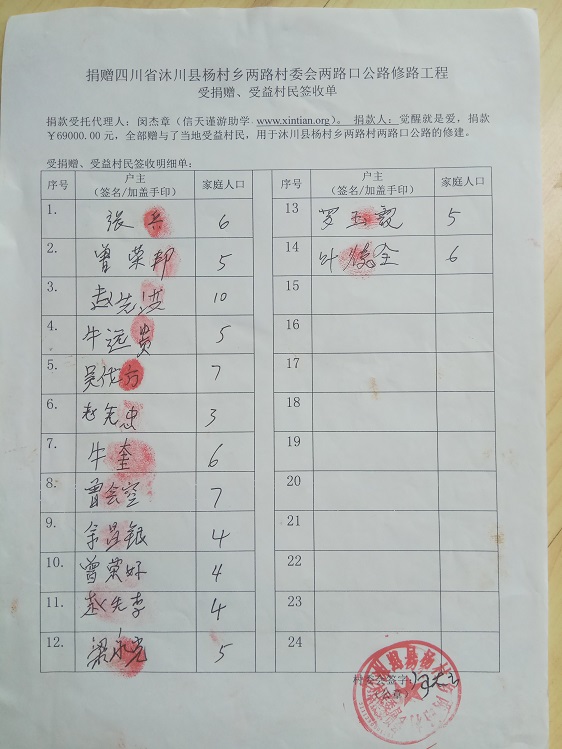 捐赠四川省沐川县杨村乡两路村委会两路口公路修路工程
受捐赠、受益村民签收单
捐款受托代理人：闵杰章（信天谨游助学 www.xintian.org）。 捐款人：觉醒就是爱，捐款
￥69000.00 元，全部赠与了当地受益村民，用于沐川县杨村乡两路村两路口公路的修建。
受捐赠、受益村民签收明细单：
序号 户主 （签名/加盖手印） 家庭人口 序号 户主 （签名/加盖手印） 家庭人口
1. 張兵 6 13 罗玉 5
2. 曾荣邦 5 14 叶 全 6
3. 赵先 10 15
4. 牛远贵 5 16
5. 吴 方 7 17
6. 赵先忠 3 18
7. 牛奎 6 19
8. 曾会空 7 20
9. 余昌银 4 21
10. 曾荣好 4 22
11. 赵先李 4 23
12. 梁永亮 5 24
村委会签字：